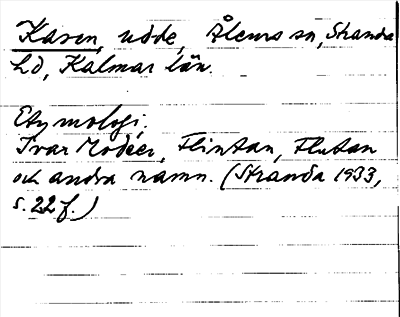 Karen, udde, Ålems sn, Stranda
hd, Kalmar län.
Etymologi:
Ivar Modéer, Flintan, Flutan
och andra namn. (Stranda 1933,
s. 22 f.)